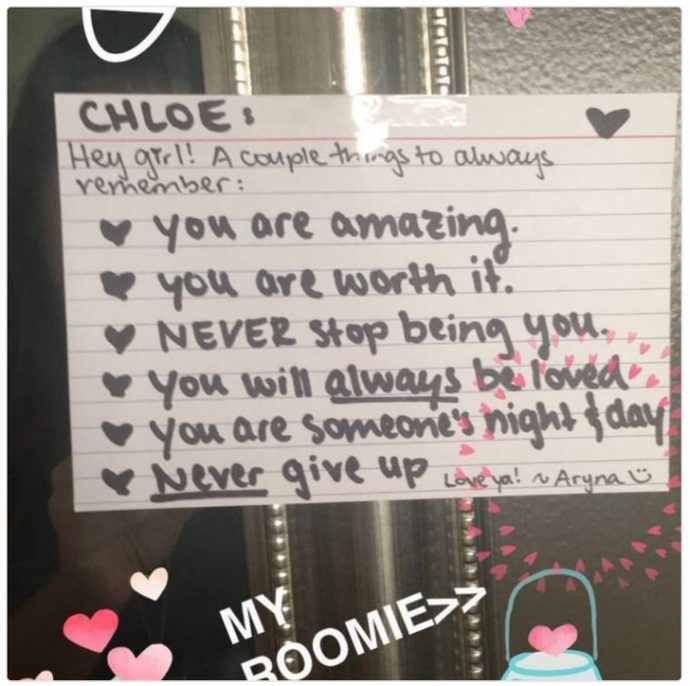 CHLOE:
Hey girl! A couple things to always
remember:
you are amazing.
you are worth it.
NEVER stop being you.
you will always be loved
you are someone's night & day
Never give up Love ya! ~ Aryna
MY
ROOMIE>>